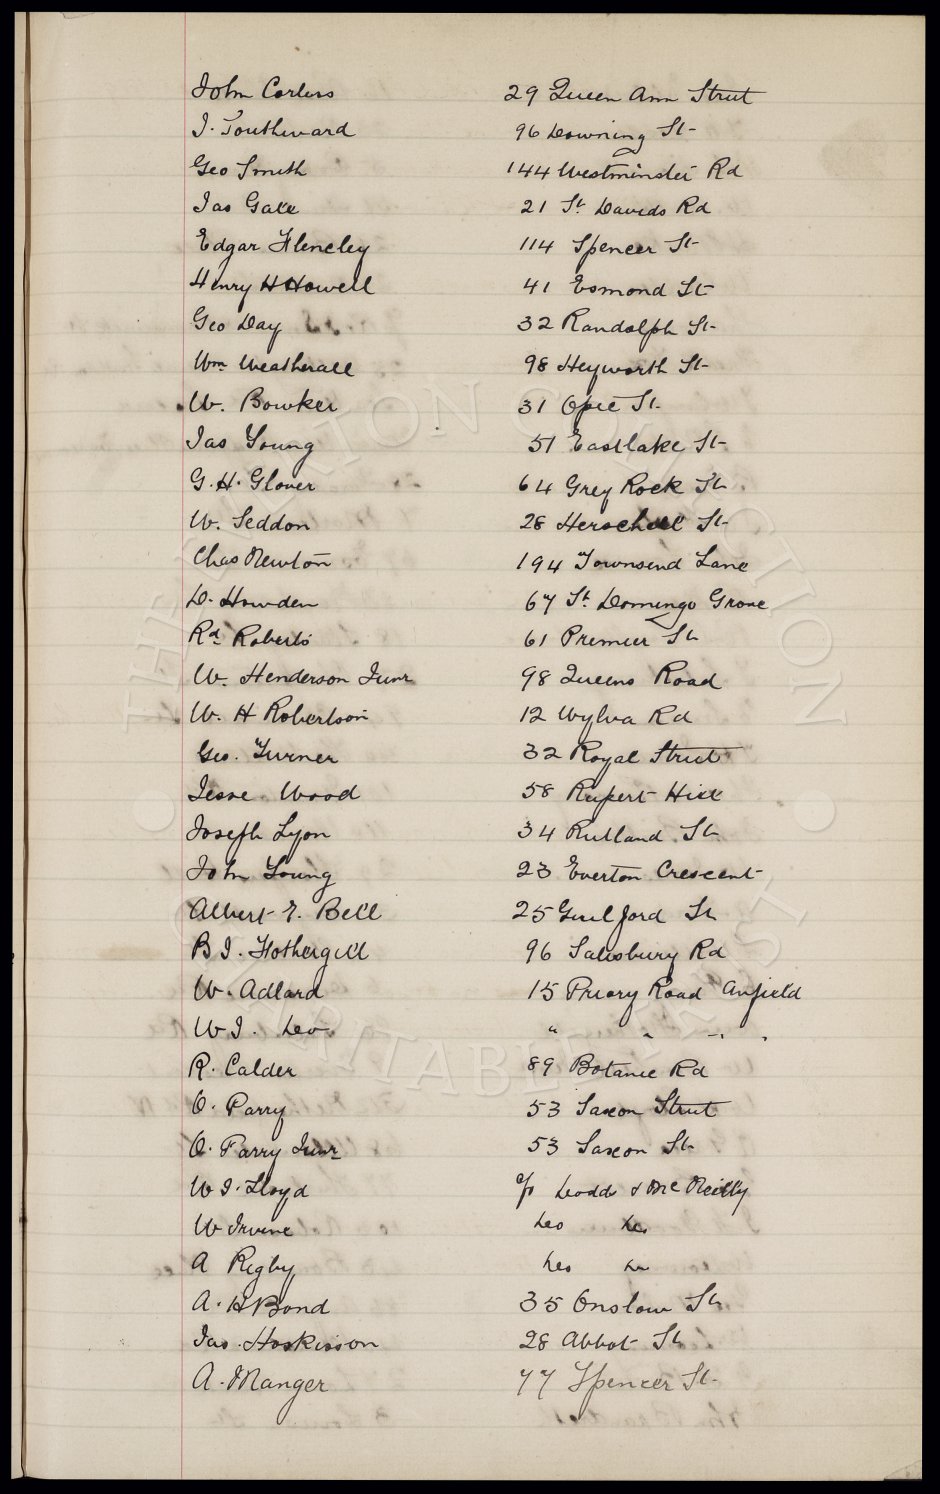 John Corless 29 Queen Ann Street
J. Southward 96 Downing St
Geo Smith 144 Westminster Rd
Jas Gale 21 St Davids Rd
Edgar 114 Spencer St
Henry H Howell 41 Esmond St
Geo Day 32 Randolph St
Wm Weatherall 98 Heyworth St
W. Bowker 31 Opie St
Jas Young 51 Eastlake St
G. H. Glover 64 Grey Rock St
W. Seddon 28 Herschell St
Chas Newton 194 Townsend Lane
D. Howden 67 St Domingo Grove
Rd Roberts 61 Premier St
W. Henderson Junr 98 Queens Road
W. H Robertson 12 Wylva Rd
Geo. Turner 32 Royal Street
Jesse Wood 58 Rupert Hill
Joseph Lyon 34 Rutland St
John Young 23 Everton Crescent
Albert E. Bell 25 Guilford St
B J. Fothergill 96 Salisbury Rd
W. Adlard 15 Priory Road Anfield
W J. Do " " " "
R. Calder 89 Botanic Rd
O. Parry 53 Saxon Street
O. Parry Junr 53 Saxon St
W J. Lloyd c/o Dodds & McNeilly
W Irvine Do Do
A Rigby Do Do
A. H Bond 35 Onslow St
Jas. Hoskisson 28 Abbot St
A. Manger 77 Spencer St
THE EVERTON COLLECTION
CHARITABLE TRUST